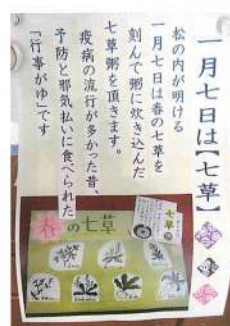 一月七日は【七草】
松の内が明ける
一月七日は春の七草を
刻んで粥に炊き込んだ
七草粥を頂きます。
疫病の流行が多かった昔、
予防と邪気払いに食べられた
「行事がゆ」です
春の七草
七草